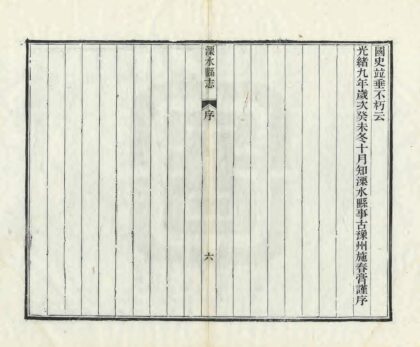 國史並垂不朽云
光緒九年歲次癸未冬十月知溧水縣事古豫州施春膏謹序
溧水縣志
序
六